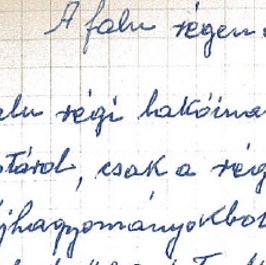 A falu régen
alu régi lakóina
tárol, csak a rég
jhagyományokbol